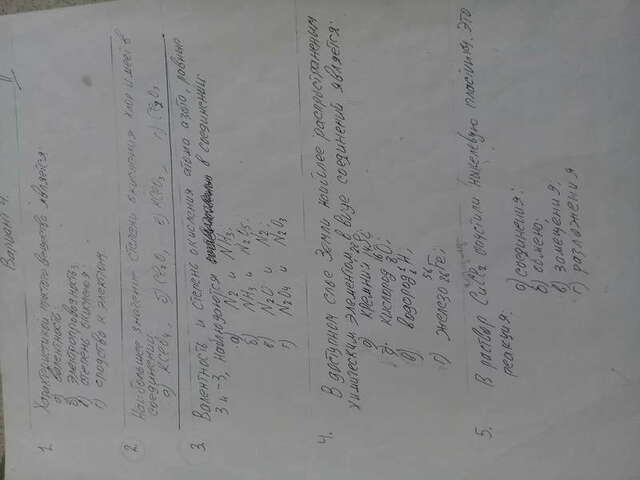 Вариант 4.
1. Характеристикой простого вещества является
а) валентность
б) электроотрицательность
в) степень окисления
г) сродство к электрону
2. Наибольшее значение степени окисления хлор имеет в
соединении:
а) KClO4, б) Cl2O, в) KClO3, г) Cl2O3
3. Валентность и степень окисления атома азота, равные
3 и -3, наблюдаются в соединении:
а) N2 и NH3
б) NH3 и N2O5
в) N2O и N2
г) N2O4 и N2O3
4. В доступном слое Земли наиболее распространенным
химическим элементом в виде соединений является:
а) кремний
б) кислород
в) водород
г) железо
5. В раствор CuCl2 опустили цинковую пластинку. Это
реакция:
а) соединения;
б) обмена;
в) замещения;
г) разложения